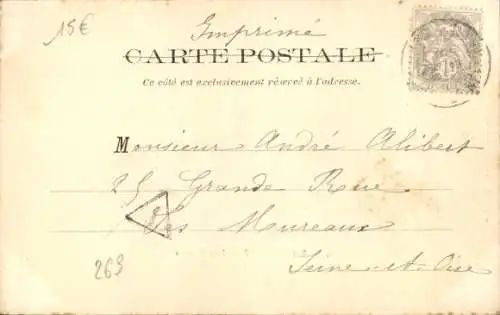 15€
Imprimé
CARTE POSTALE
Ce côté est exclusivement réservé à l'adresse.
Monsieur André Alibert
25 Grande Rue
Les Mureaux
Seine-et-Oise
269